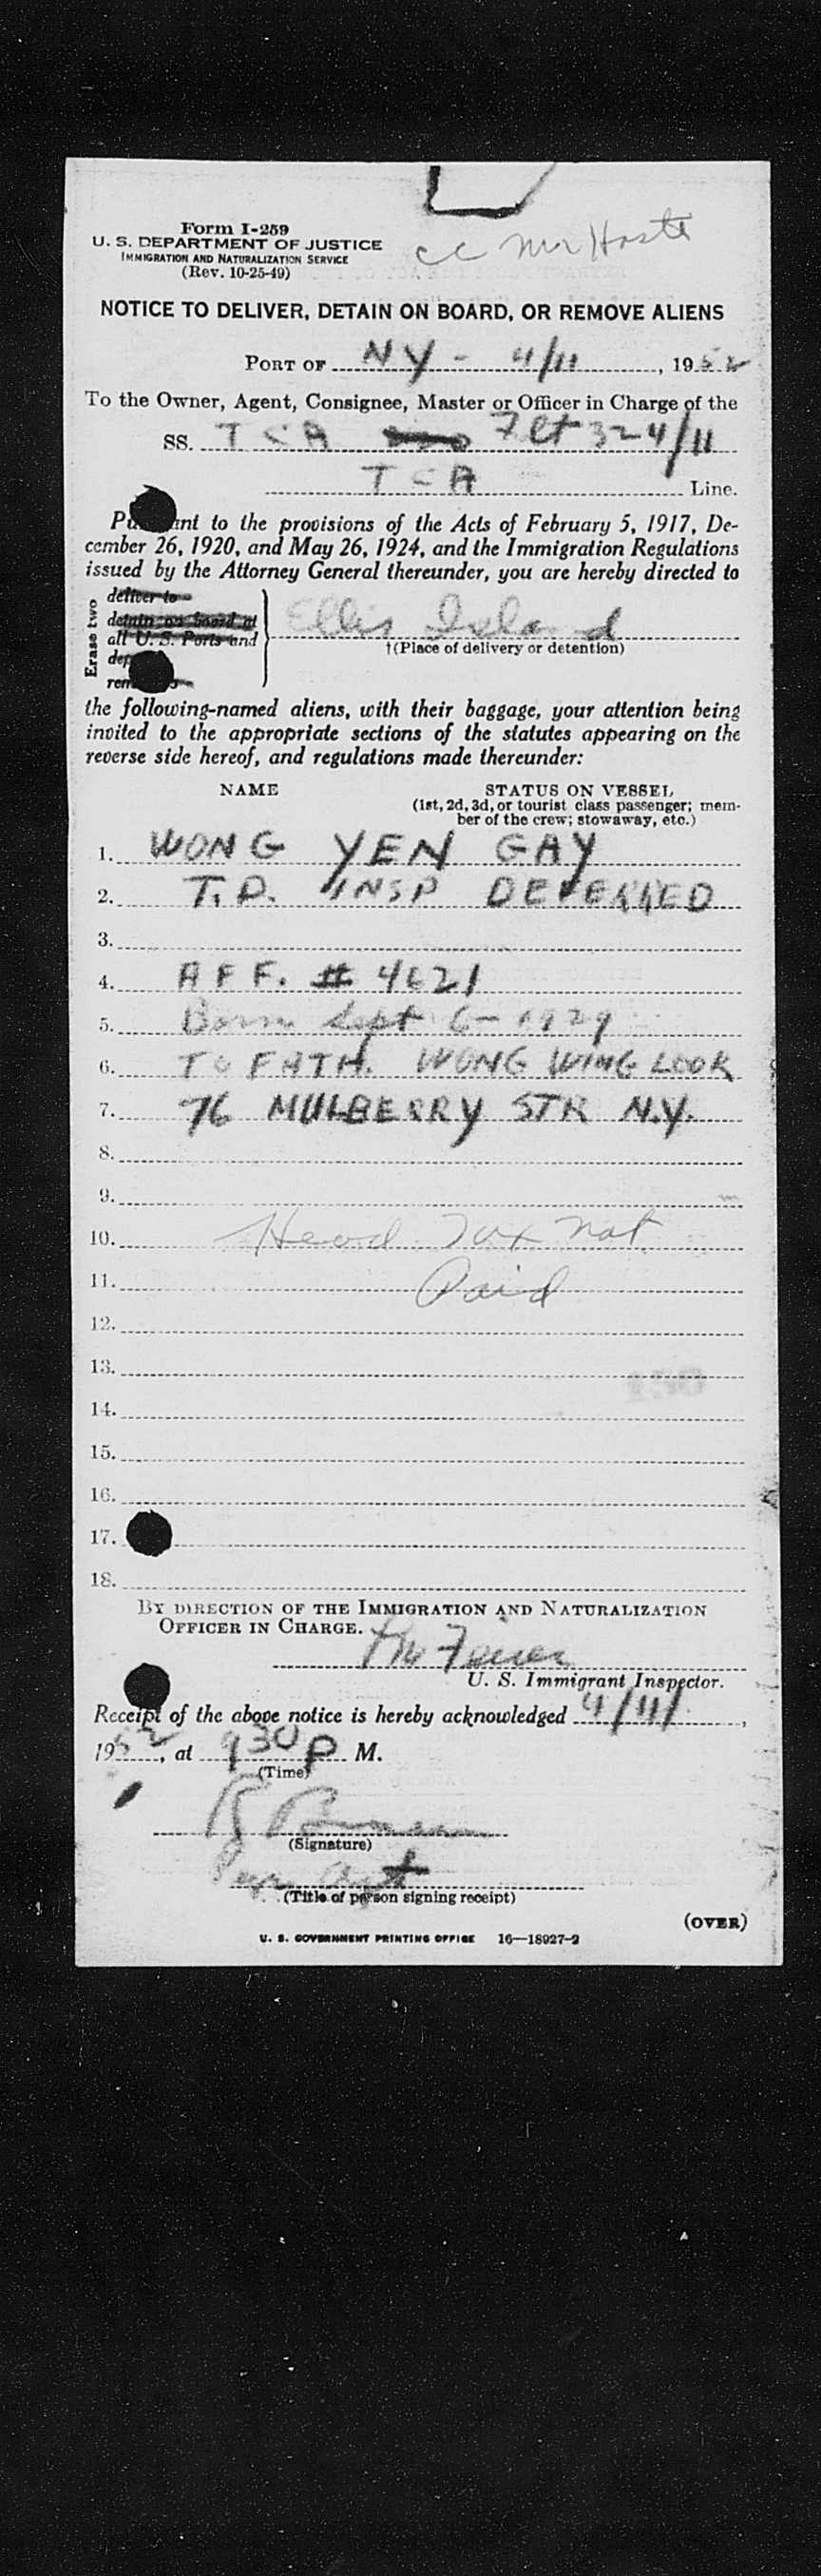 Form I-259
U. S. DEPARTMENT OF JUSTICE
IMMIGRATION AND NATURALIZATION SERVICE
(Rev. 10-25-49)
cc Mr
NOTICE TO DELIVER, DETAIN ON BOARD, OR REMOVE ALIENS
PORT OF NY - 4/11, 1952
To the Owner, Agent, Consignee, Master or Officer in Charge of the
SS. TCA Flt 32 4/11
TCA Line.
to the provisions of the Acts of February 5, 1917, De-
cember 26, 1920, and May 26, 1924, and the Immigration Regulations
issued by the Attorney General thereunder, you are hereby directed to
Erase two
deliver to
detain on board at
all U. S. Ports and
Ellis Island
†(Place of delivery or detention)
the following-named aliens, with their baggage, your attention being
invited to the appropriate sections of the statutes appearing on the
reverse side hereof, and regulations made thereunder:
NAME STATUS ON VESSEL
(1st, 2d, 3d, or tourist class passenger; mem-
ber of the crew; stowaway, etc.)
1. WONG YEN GAY
2. T.D. INSP DEFERRED
3.
4. AFF. # 4621
5. Born Sept 6-1929
6. TO FATH. WONG WING LOOK
7. 76 MULBERRY STR N.Y.
8.
9.
10. Head Tax not
11. Paid
12.
13.
14.
15.
16.
17.
18.
BY DIRECTION OF THE IMMIGRATION AND NATURALIZATION
OFFICER IN CHARGE.
U. S. Immigrant Inspector.
Receipt of the above notice is hereby acknowledged 4/11/,
1952, at 930 P M.
(Time)
(Signature)
(Title of person signing receipt)
(OVER)
U. S. GOVERNMENT PRINTING OFFICE 16—18927-2